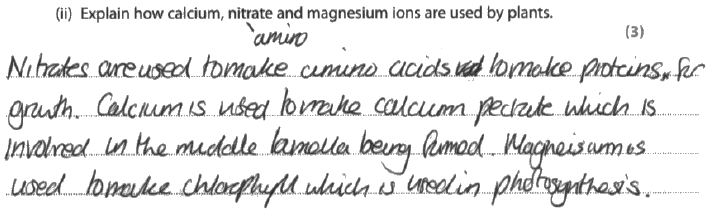 (ii) Explain how calcium, nitrate and magnesium ions are used by plants.
amino
(3)
Nitrates are used to make amino acids to make proteins, for
growth. Calcium is used to make calcium pectate which is
involved in the middle lamella being formed. Magneisum is
used to make chlorophyll which is used in photosynthesis.